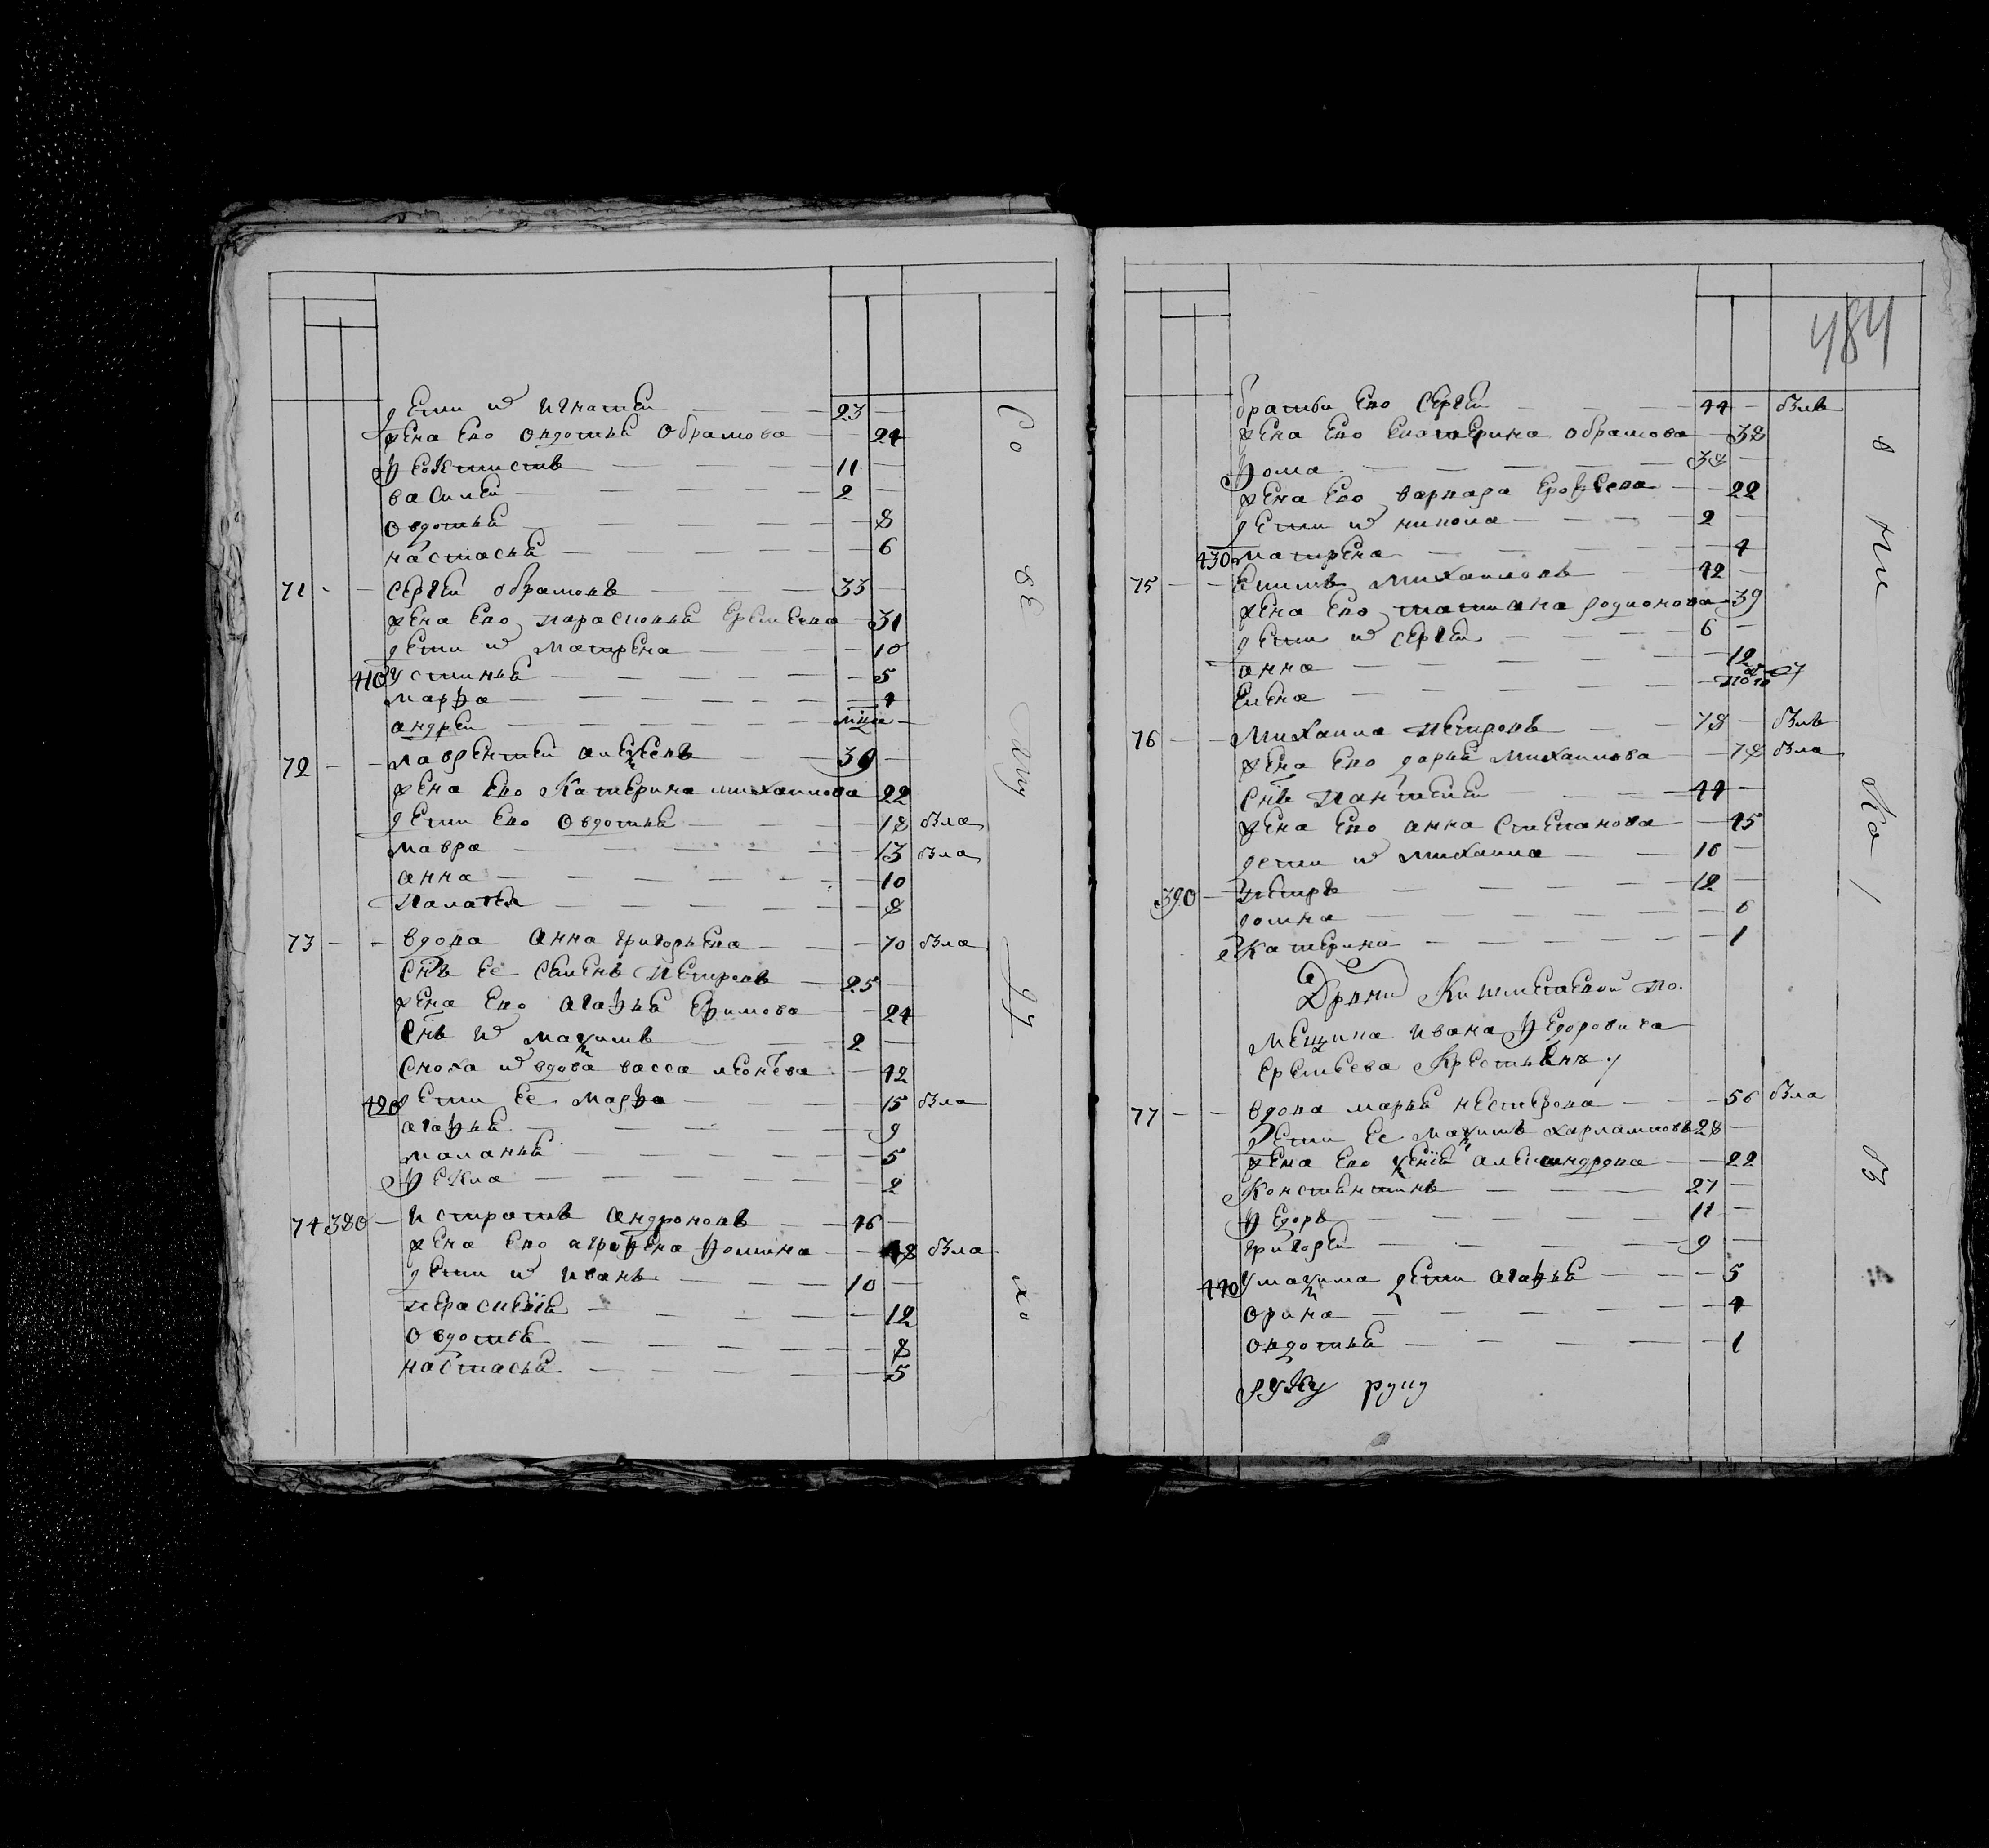 дети их Игнатей 23
жена ево Овдотья Обрамова 24
Феоктистъ 11
Василей 2
Овдотья 8
Настасья 6
71 Сергей Обрамовъ 33
жена ево Парасковья Еремеева 31
дети их Матрена 10
410 Устинья 5
Марфа 4
Андрей
72 Лаврентей Алексеевъ 39
жена ево Катерина Михаилова 22
дети ево Овдотья 18 бъıла
Мавра 13 бъıла
Анна 10
Палагея 8
73 вдова Анна Григорьева 70 бъıла
снъ ее Семенъ Петровъ 25
жена ево Агафья Ефимова 24
снъ их Мақимъ 2
сноха их вдова Васса 42
420 дети ее Марфа 15 бъıла
Агафья 9
Маланья 5
Фекла 2
74 380 Истратъ Андроновъ 46
жена ево Аграфена Фомина 48 бъıла
дети их Иванъ 10
Парасковїя 12
Овдотья 8
Настасья 5
Со зе му ху
484
братьи ево Сергей 44 бъıлъ
жена ево Екатерина Обрамова 38
Фома 38
жена ево Варвара Ерофеева 22
дети их Никола 2
430 Матрена 4
75 Михаиловъ 42
жена ево Татиана Родионова 39
дети их Сергей 6
Анна 12
Елена
76 Михаила Петровъ 78 бъıлъ
жена ево Дарья Михаилова 78 бъıла
снъ Пантелей 44
жена ево Анна Степанова 45
дети их Михаила 16
390 Петръ 12
Домна 6
Катерина 1
Дрвни по-
мещика Ивана Федоровича
Еремеева Крестьянъ
77 вдова Марья Нестерова 56 бъıла
дети ее Мақимъ Харламповъ 28
жена ево Александрова 22
Константинъ 21
Федоръ 11
Григорей 9
440 У Мақима дети Агафья 5
Орина 4
Овдотья 1
руку